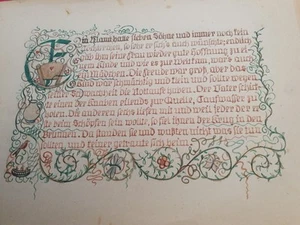 Ein Mann hatte sieben Söhne und immer noch kein
Töchterchen, so sehr er sichs auch wünschte; endlich
gab ihm seine Frau wieder gute Hoffnung zu ei-
nem Kinde und wie es zur Welt kam, wars auch
ein Mädchen. Die Freude war groß, aber das
Kind war schmächtig und klein und sollte wegen
seiner Schwachheit die Nottaufe haben. Der Vater schickte
einen der Knaben eilends zur Quelle, Taufwasser zu
holen. Die anderen sechs liefen mit und weil jeder der er-
ste beim Schöpfen sein wollte, so fiel ihnen der Krug in den
Brunnen. Da standen sie und wußten nicht was sie tun
sollten, und keiner getraute sich heim.